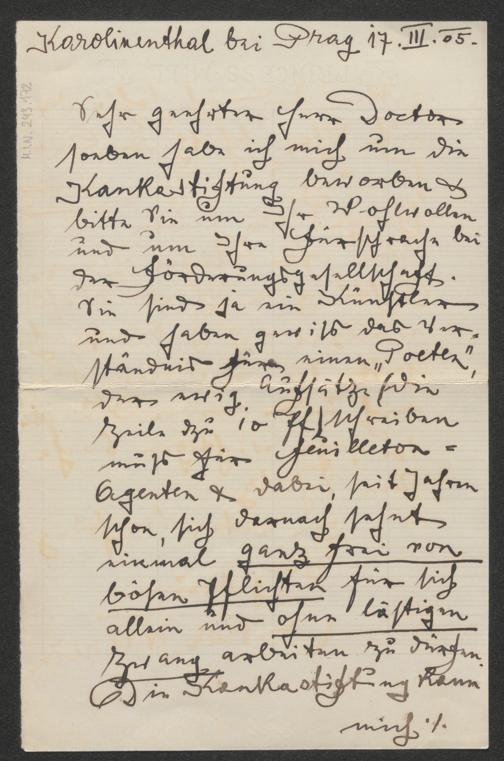 Karolinenthal bei Prag 17. III. 05.
H.I.N. 243.172
Sehr geehrter Herr Doctor
soeben habe ich mich um die
Kankastiftung beworben &
bitte Sie um Ihr Wohlwollen
und um Ihre Fürsprache bei
der Förderungsgesellschaft.
Sie sind ja ein Künstler
und haben gewiß das Ver-
ständnis für einen „Poeten",
der ewig Aufsätze (die
Zeile zu 10 Pf) schreiben
muß für Feuilleton-
Agenten & dabei, seit Jahren
schon, sich darnach sehnt
einmal ganz frei von
bösen Pflichten für sich
allein und ohne lästigen
Zwang arbeiten zu dürfen.
Die Kankastiftung kann
mich ./.